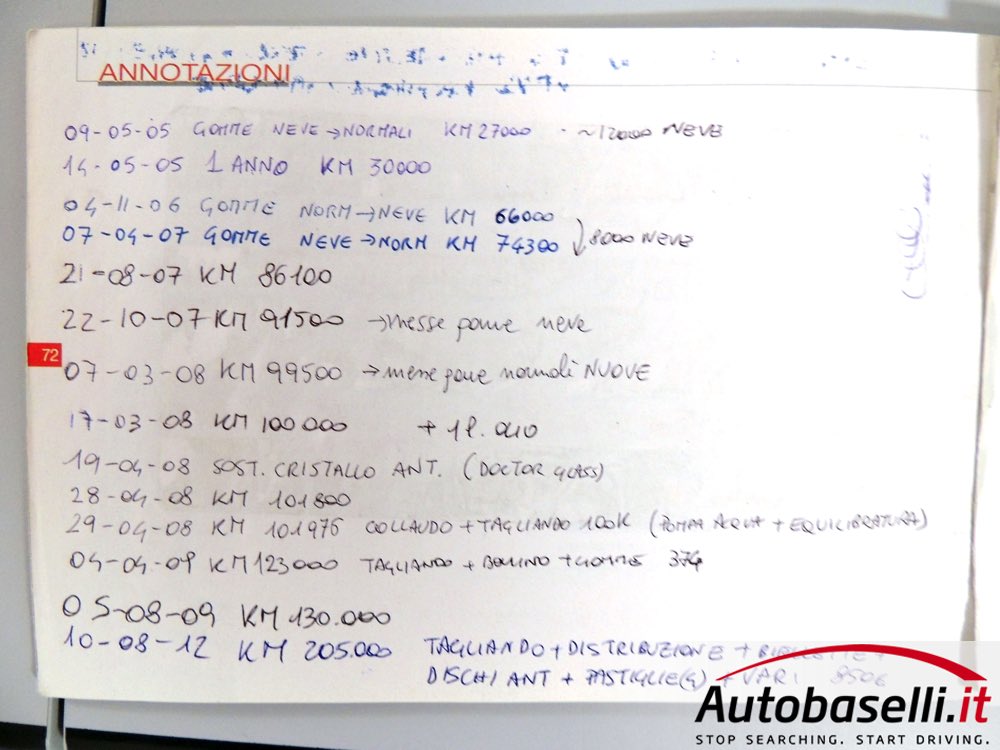 ANNOTAZIONI
09-05-05 GOMME NEVE → NORMALI KM 27000 - ~12000 NEVE
14-05-05 1 ANNO KM 30000
04-11-06 GOMME NORM → NEVE KM 66000
07-04-07 GOMME NEVE → NORM KM 74300 8000 NEVE
21-08-07 KM 86100
22-10-07 KM 91500 → messe gome neve
72
07-03-08 KM 99500 → messe gome normali NUOVE
17-03-08 KM 100000 + 1l. OLIO
19-04-08 SOST. CRISTALLO ANT. (DOCTOR GLASS)
28-04-08 KM 101800
29-04-08 KM 101976 COLLAUDO + TAGLIANDO 100K (POMPA ACQUA + EQUILIBRATURA)
04-04-09 KM 123000 TAGLIANDO + BOLLINO + GOMME 374
05-08-09 KM 130.000
10-08-12 KM 205.000 TAGLIANDO + DISTRIBUZIONE +
DISCHI ANT + PASTIGLIE(4) + VARI 850€
Autobaselli.it
STOP SEARCHING. START DRIVING.